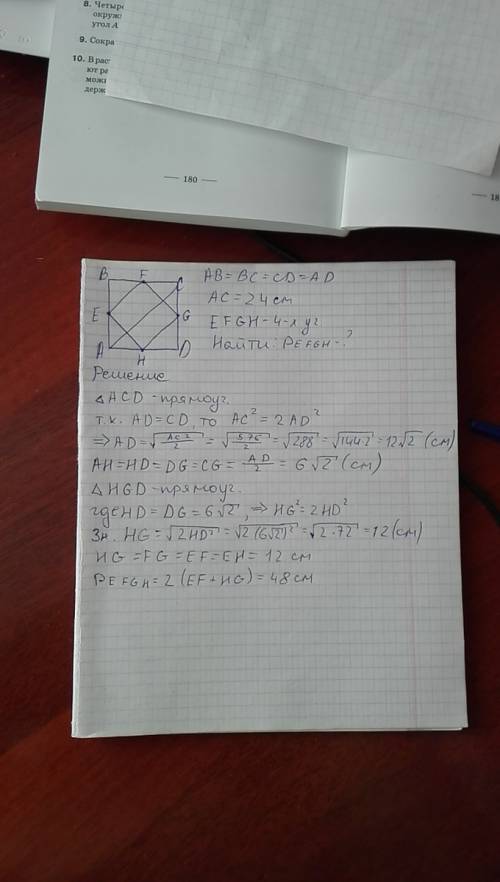 8. Четыре
окруж
угол A
9. Сокра
10. В рас
ют ра
можн
держ
— 180 —
18
B F C
E G
A H D
AB = BC = CD = AD
AC = 24 см
EFGH - 4-х уг
Найти: PEFGH - ?
Решение
△ACD - прямоуг.
т.к. AD = CD, то AC² = 2AD²
⇒ AD = √(AC²/2) = √(576/2) = √288 = √(144·2) = 12√2 (см)
AH = HD = DG = CG = AD/2 = 6√2 (см)
△HGD - прямоуг.
где HD = DG = 6√2, ⇒ HG² = 2HD²
Зн. HG = √(2HD²) = √(2(6√2)²) = √(2·72) = 12 (см)
HG = FG = EF = EH = 12 см
PEFGH = 2 (EF + HG) = 48 см